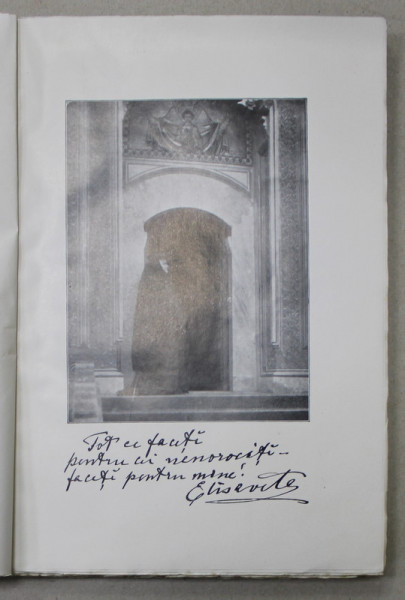 Tot ce faceți
pentru cei nenorociți –
faceți pentru mine!
Elisaveta